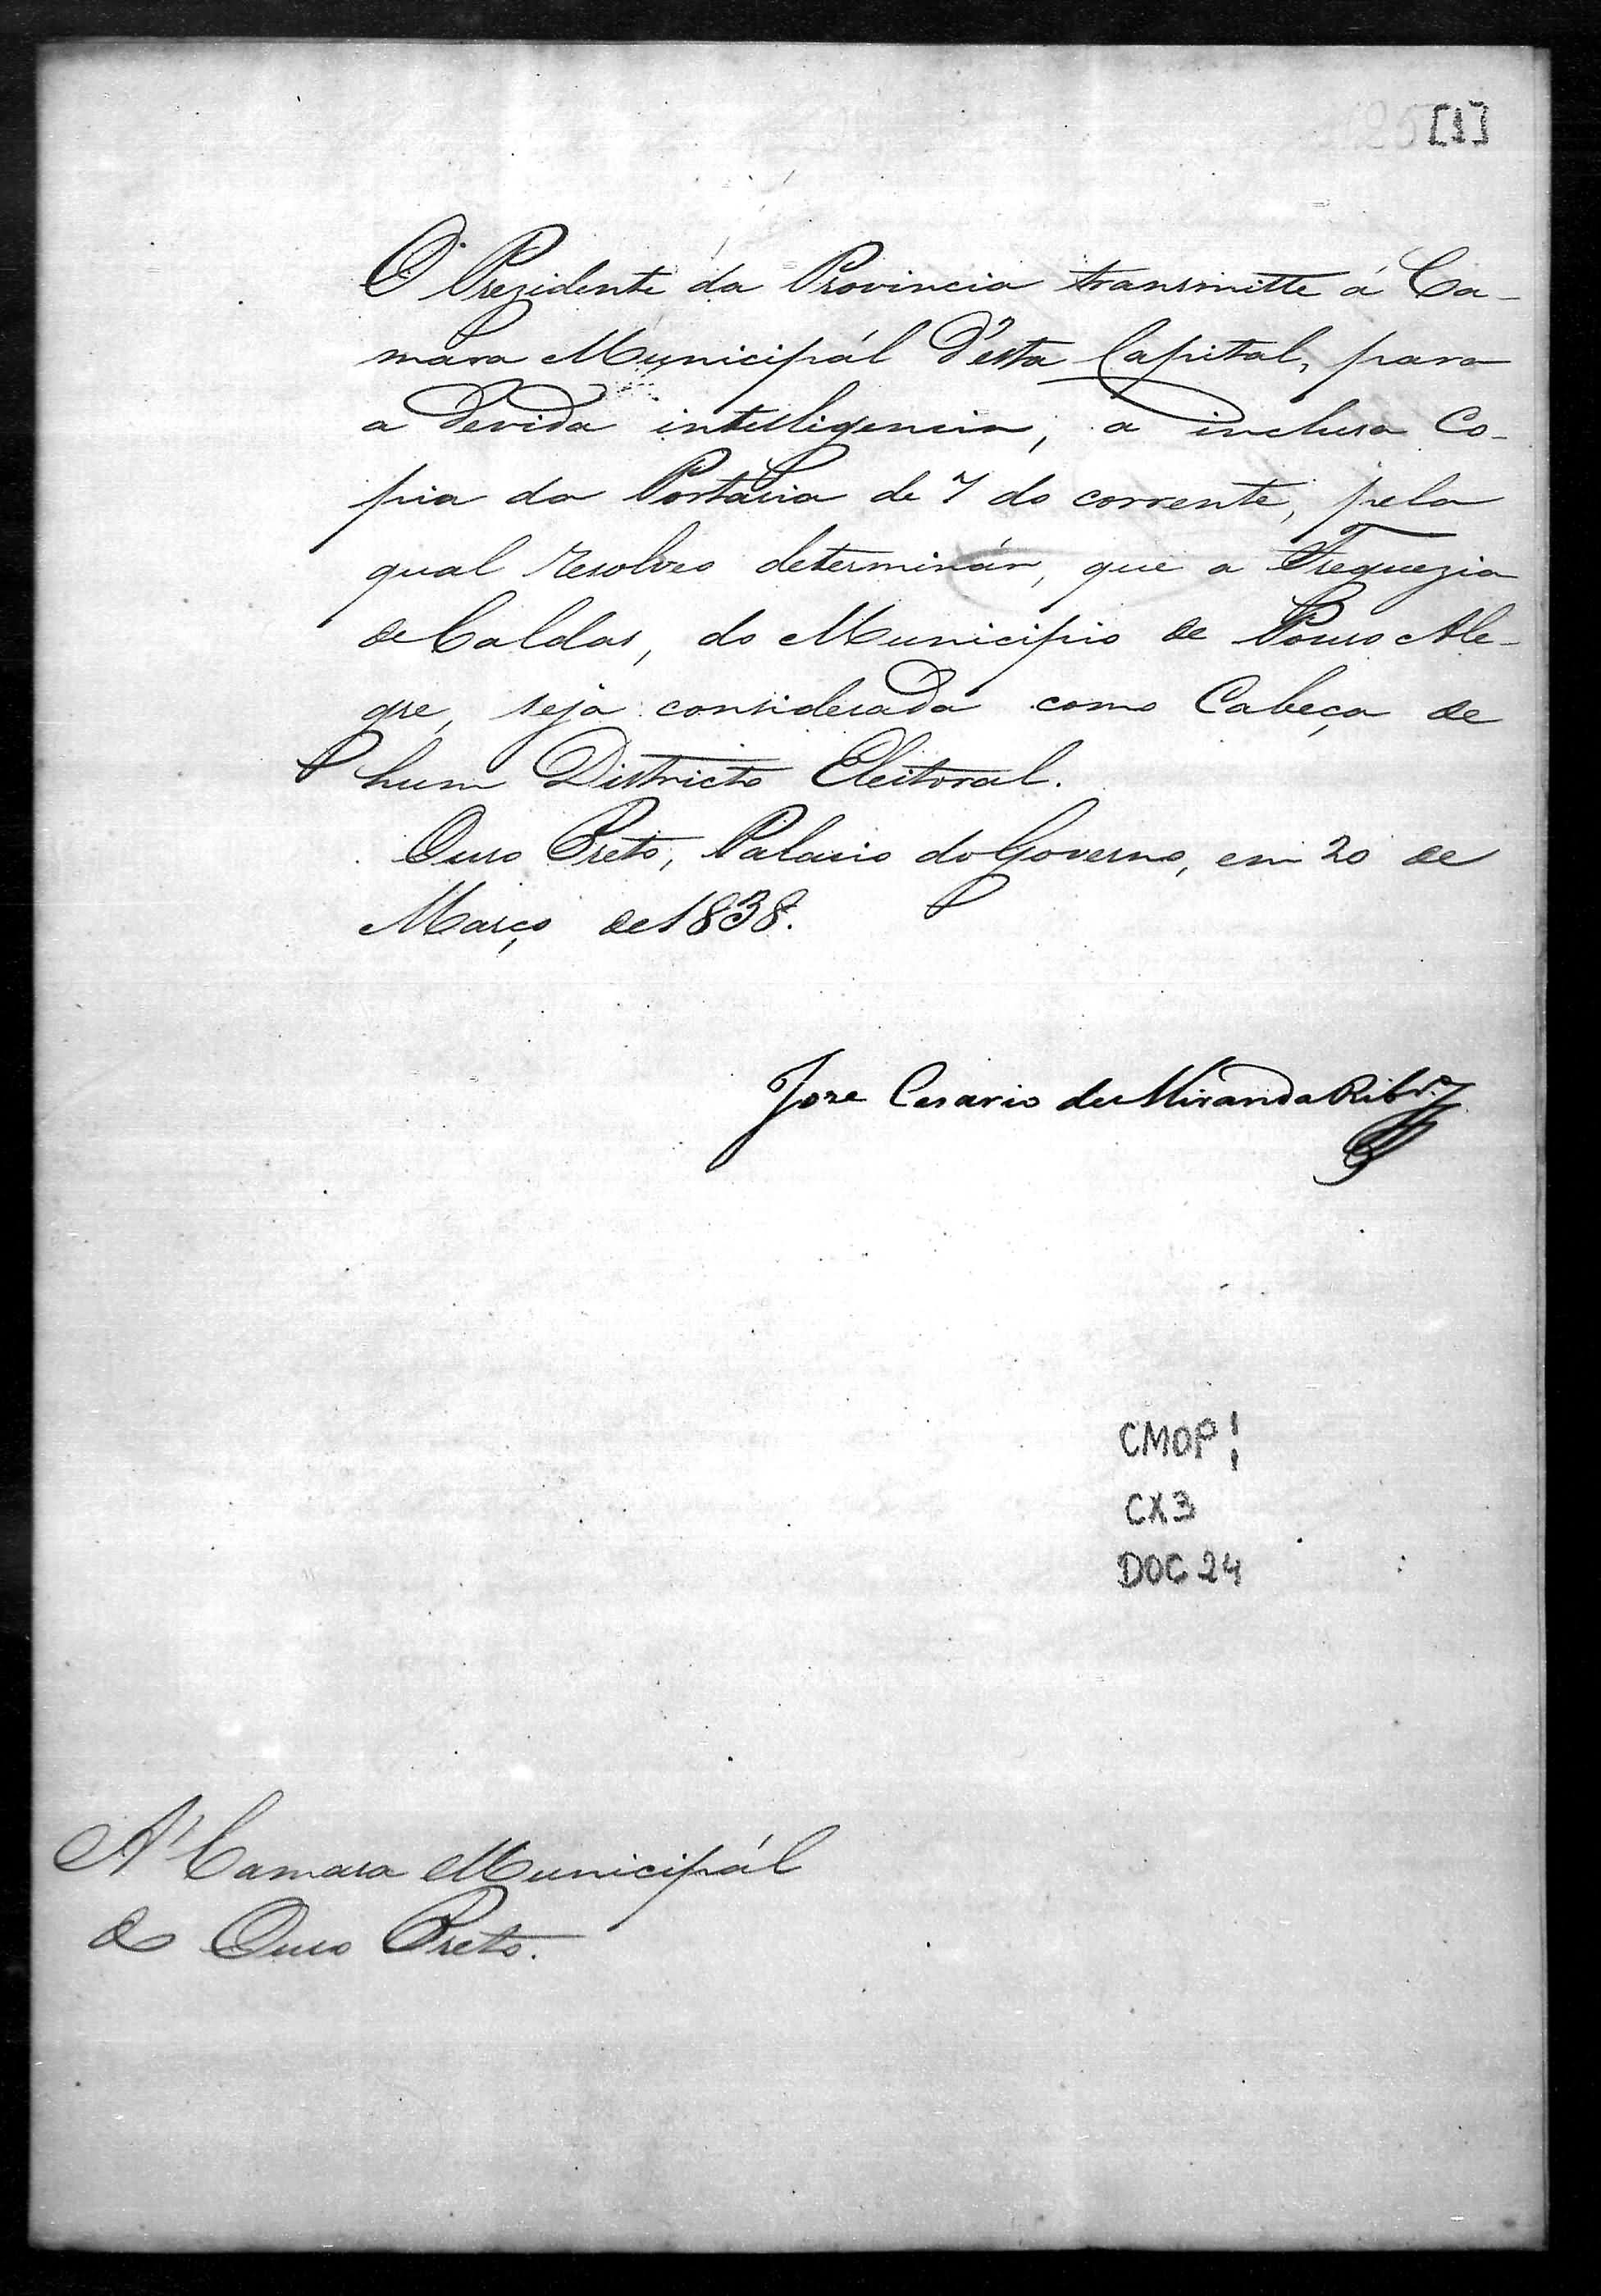 [1]
O Prezidente da Provincia transmitte á Ca-
mara Municipál d'esta Capital, para
a devida intelligencia, a inclusa Co-
pia da Portaria de 7 do corrente, pela
qual resolveo determinár, que a Freguezia
de Caldas, do Municipio de Pouso Ale-
gre, seja considerada como Cabeça de
hum Districto Eleitoral.
Ouro Preto, Palacio do Governo, em 20 de
Março de 1838.
Jose Cesario de Miranda Ribr.º
CMOP
CX3
DOC 24
A' Camara Municipál
de Ouro Preto.